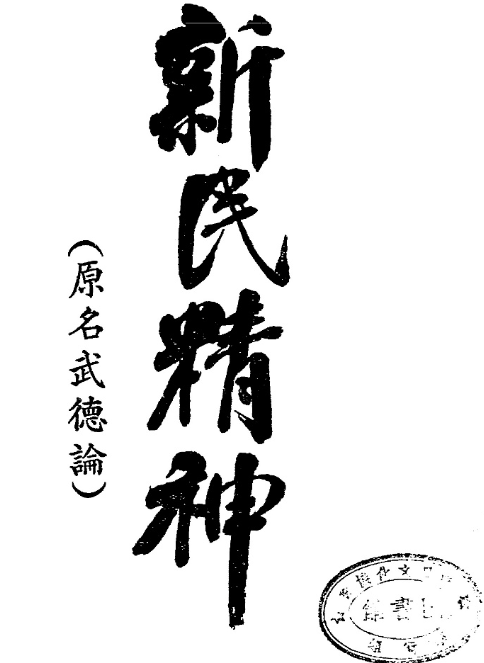 新民精神
(原名武德論)